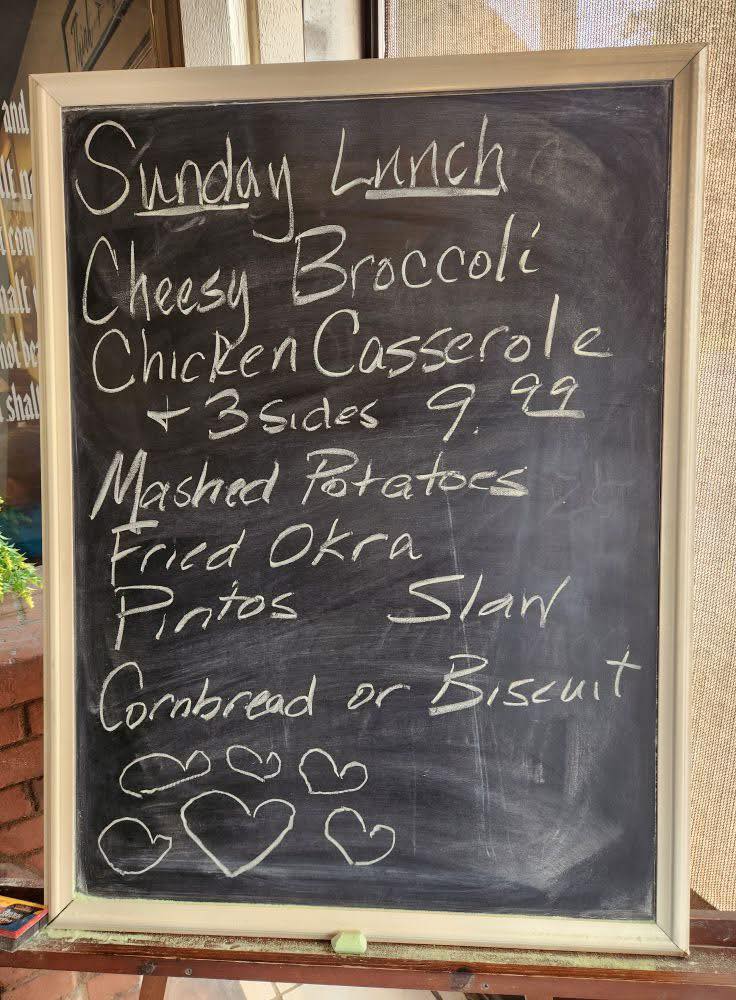 Sunday Lunch
Cheesy Broccoli
Chicken Casserole
+ 3 sides 9.99
Mashed Potatoes
Fried Okra
Pintos Slaw
Cornbread or Biscuit
and
shall